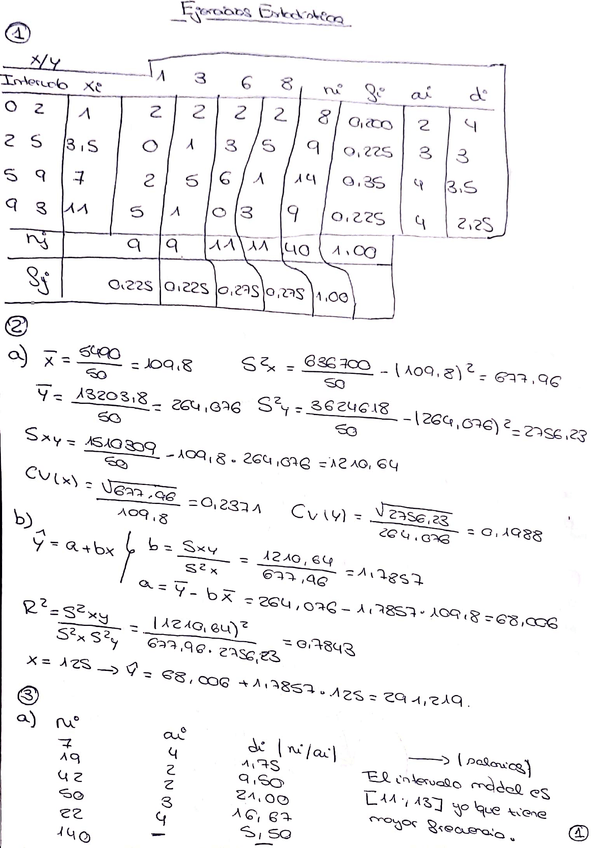 Ejercicios Estadística
①
X/Y
Intervalo xi 1 3 6 8 ni fi ai di
0 2 1 2 2 2 2 8 0,200 2 4
2 5 3,5 0 1 3 5 9 0,225 3 3
5 9 7 2 5 6 1 14 0,35 4 3,5
9 3 11 5 1 0 3 9 0,225 4 2,25
nj 9 9 11 11 40 1.00
fj 0,225 0,225 0,275 0,275 1,00
②
a) x̄ = 5490/50 = 109,8 S²x = 636700/50 - (109,8)² = 677,96
ȳ = 13203,8/50 = 264,076 S²y = 3624618/50 - (264,076)² = 2756,23
Sxy = 1510309/50 - 109,8 · 264,076 = 1210,64
CV(x) = √677,96/109,8 = 0,2371 CV(y) = √2756,23/264,076 = 0,1988
b) ŷ = a + bx b = Sxy/S²x = 1210,64/677,96 = 1,7857
a = ȳ - bx̄ = 264,076 - 1,7857 · 109,8 = 68,006
R² = S²xy/S²x S²y = (1210,64)²/677,96 · 2756,23 = 0,7843
x = 125 → ŷ = 68,006 + 1,7857 · 125 = 291,219.
③
a) ni ai di (ni/ai) → (salarios)
7 4 1,75 El intervalo modal es
19 2 9,50 [11, 13] ya que tiene
42 2 21,00 mayor frecuencia.
50 3 16,67
22 4 5,50
140 – –
①